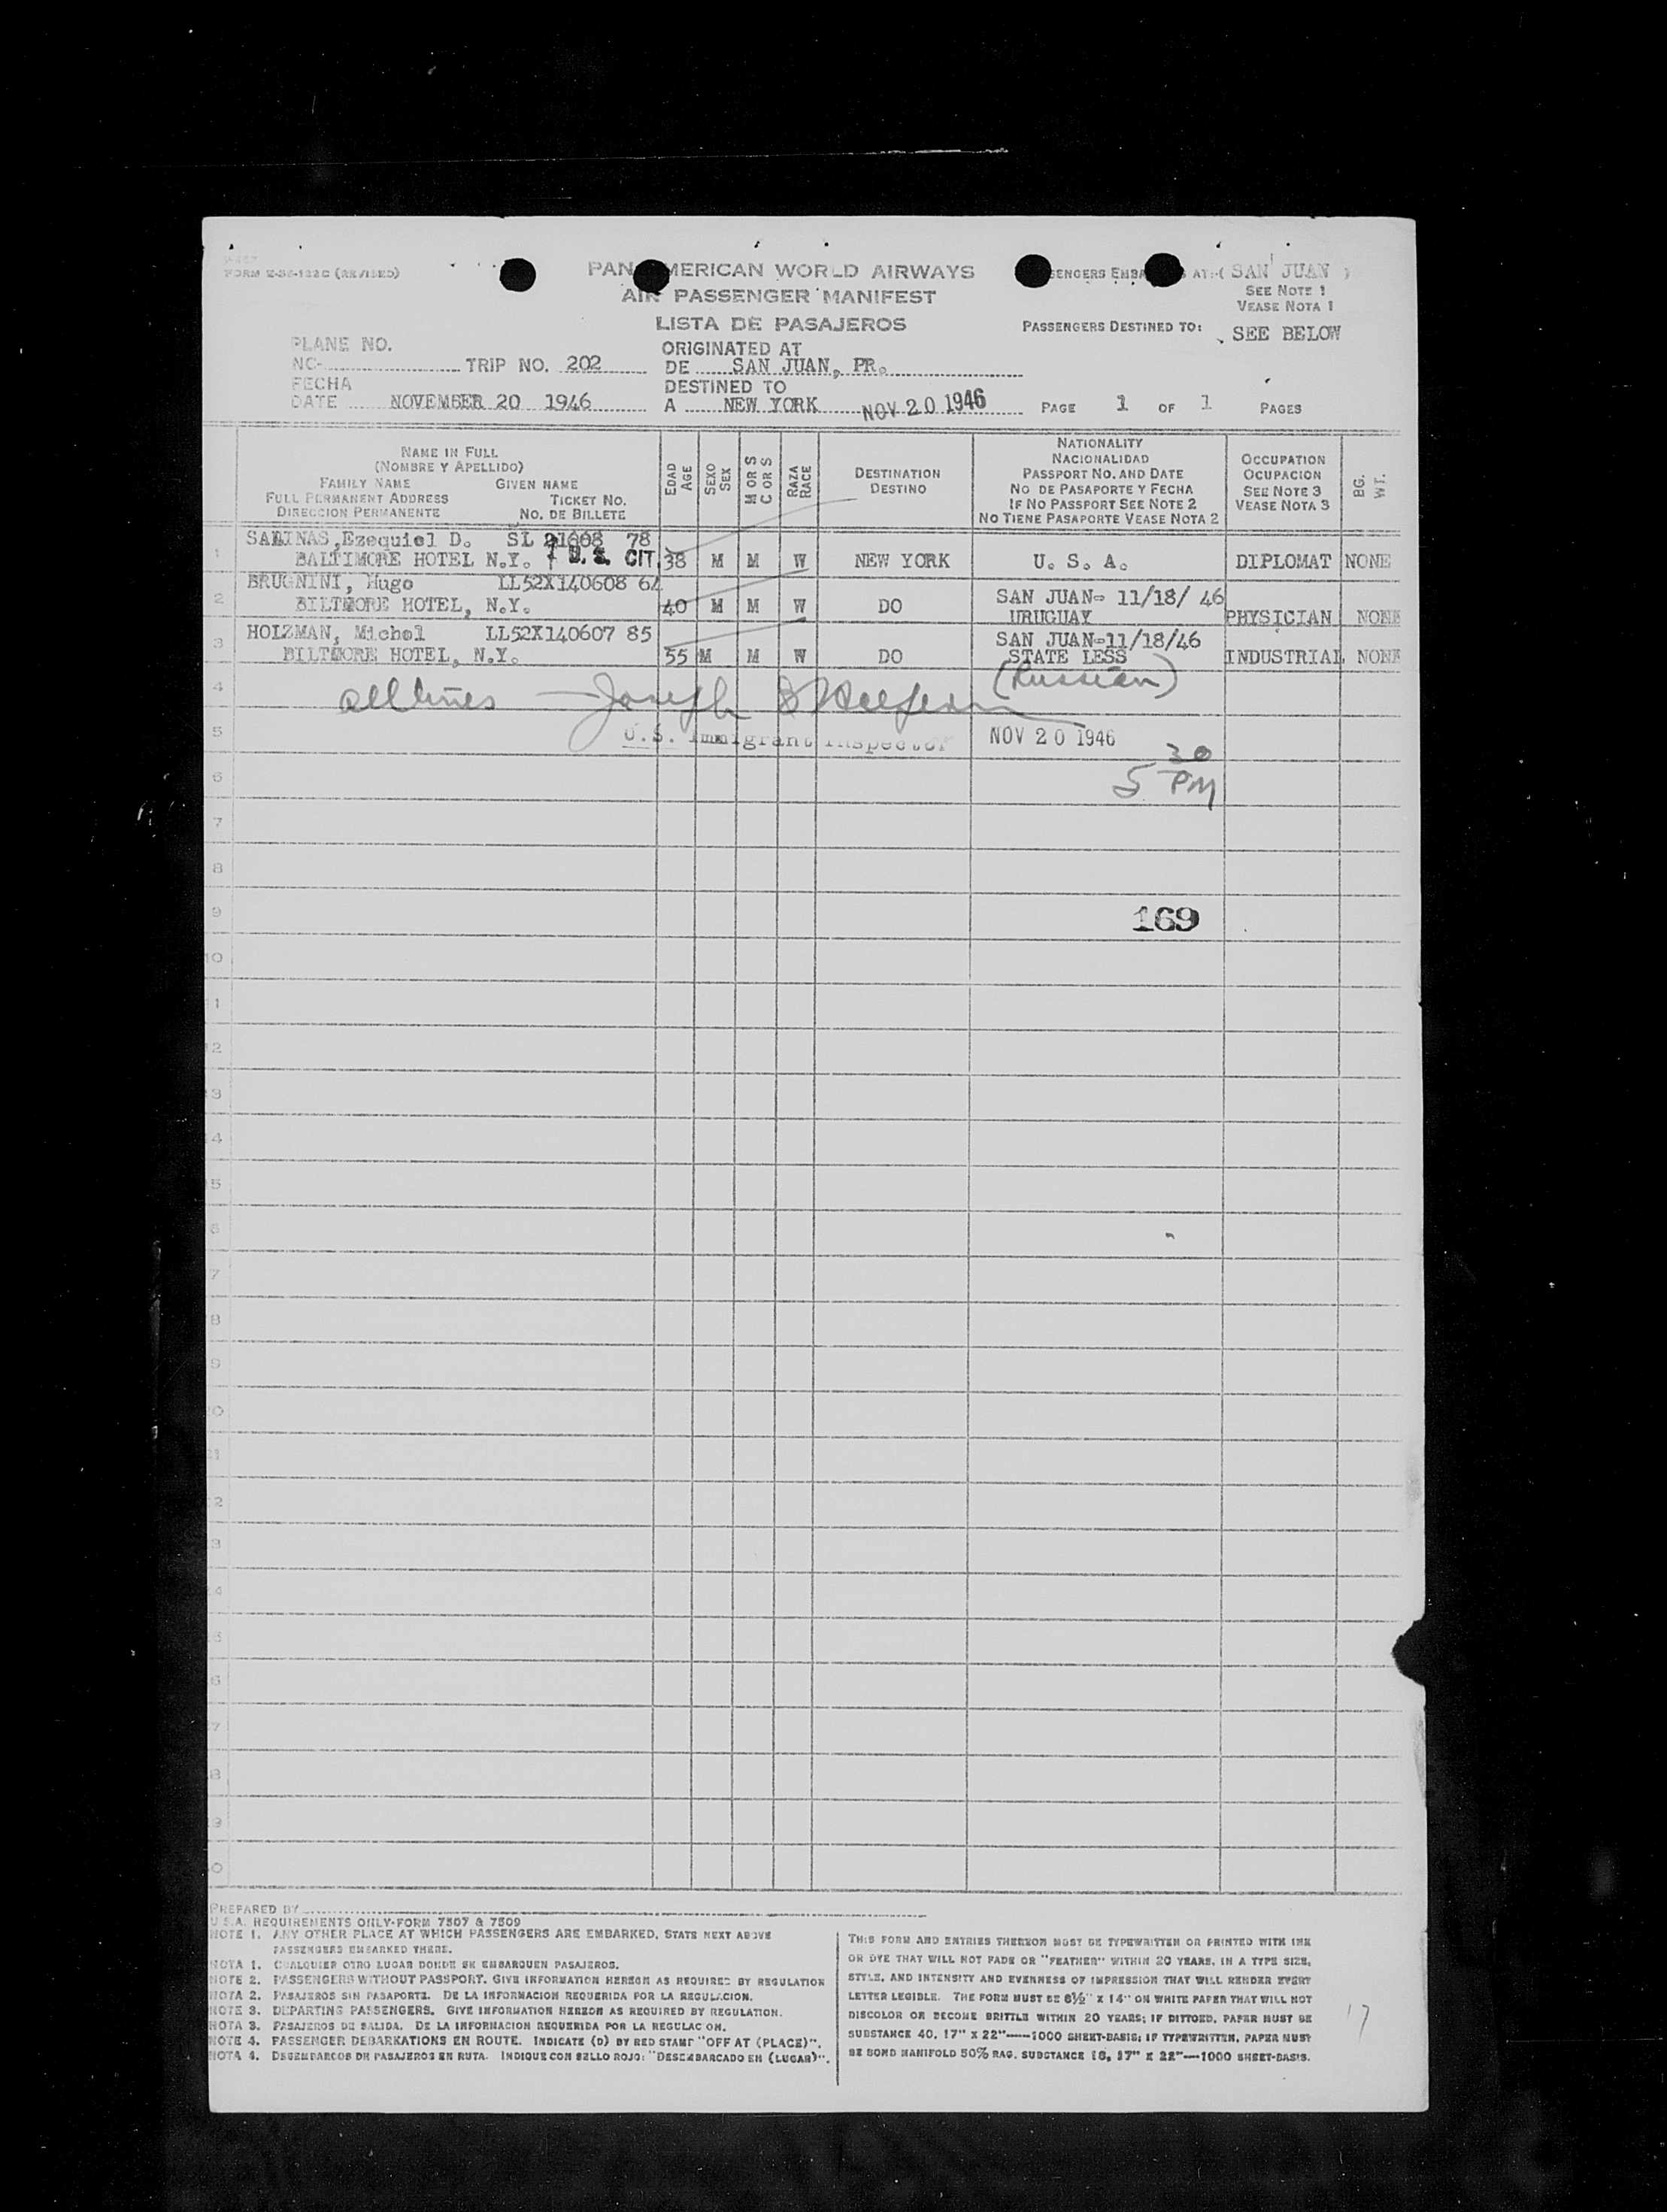 FORM E-SS-122C (REVISED)
PAN AMERICAN WORLD AIRWAYS
AIR PASSENGER MANIFEST
LISTA DE PASAJEROS
AT:-( SAN JUAN )
SEE NOTE 1
VEASE NOTA 1
PASSENGERS DESTINED TO: SEE BELOW
PLANE NO.
NC- TRIP NO. 202
FECHA
DATE NOVEMBER 20 1946
ORIGINATED AT
DE SAN JUAN, PR.
DESTINED TO
A NEW YORK NOV 20 1946 PAGE 1 OF 1 PAGES
NAME IN FULL
(NOMBRE Y APELLIDO)
FAMILY NAME GIVEN NAME
FULL PERMANENT ADDRESS TICKET NO.
DIRECCION PERMANENTE NO. DE BILLETE
EDAD
AGE
SEXO
SEX
M OR S
C OR S
RAZA
RACE
DESTINATION
DESTINO
NATIONALITY
NACIONALIDAD
PASSPORT NO. AND DATE
NO DE PASAPORTE Y FECHA
IF NO PASSPORT SEE NOTE 2
NO TIENE PASAPORTE VEASE NOTA 2
OCCUPATION
OCUPACION
SEE NOTE 3
VEASE NOTA 3
BG.
WT.
1 SALINAS, Ezequiel D. SL 21608 78
BALTIMORE HOTEL N.Y. U.S. CIT. 38 M M W NEW YORK U. S. A. DIPLOMAT NONE
2 BRUGNINI, Hugo LL52X140608 64
BILTMORE HOTEL, N.Y. 40 M M W DO SAN JUAN- 11/18/ 46
URUGUAY PHYSICIAN NONE
3 HOLZMAN, Michel LL52X140607 85
BILTMORE HOTEL, N.Y. 55 M M W DO SAN JUAN-11/18/46
STATE LESS INDUSTRIAL NONE
4 all lines — Joseph (Russian)
5 U.S. Immigrant Inspector NOV 20 1946
6 5 30 PM
7
8
9 169
10
1
2
3
4
5
6
7
8
9
0
21
2
3
4
5
6
7
8
9
0
PREPARED BY
U.S.A. REQUIREMENTS ONLY-FORM 7507 & 7509
NOTE 1. ANY OTHER PLACE AT WHICH PASSENGERS ARE EMBARKED, STATE NEXT ABOVE
PASSENGERS EMBARKED THERE.
NOTA 1. CUALQUIER OTRO LUGAR DONDE SE EMBARQUEN PASAJEROS.
NOTE 2. PASSENGERS WITHOUT PASSPORT. GIVE INFORMATION HEREON AS REQUIRED BY REGULATION
NOTA 2. PASAJEROS SIN PASAPORTE. DE LA INFORMACION REQUERIDA POR LA REGULACION.
NOTE 3. DEPARTING PASSENGERS. GIVE INFORMATION HEREON AS REQUIRED BY REGULATION.
NOTA 3. PASAJEROS DE SALIDA. DE LA INFORMACION REQUERIDA POR LA REGULACION.
NOTE 4. PASSENGER DEBARKATIONS EN ROUTE. INDICATE (D) BY RED STAMP "OFF AT (PLACE)".
NOTA 4. DESEMBARCOS DE PASAJEROS EN RUTA. INDIQUE CON SELLO ROJO: "DESEMBARCADO EN (LUGAR)".
THIS FORM AND ENTRIES THEREON MUST BE TYPEWRITTEN OR PRINTED WITH INK
OR DYE THAT WILL NOT FADE OR "FEATHER" WITHIN 20 YEARS, IN A TYPE SIZE,
STYLE, AND INTENSITY AND EVENNESS OF IMPRESSION THAT WILL RENDER EVERY
LETTER LEGIBLE. THE FORM MUST BE 8½" X 14" ON WHITE PAPER THAT WILL NOT
DISCOLOR OR BECOME BRITTLE WITHIN 20 YEARS; IF DITTOED, PAPER MUST BE
SUBSTANCE 40, 17" X 22"——1000 SHEET-BASIS; IF TYPEWRITTEN, PAPER MUST
BE BOND MANIFOLD 50% RAG, SUBSTANCE 16, 17" X 22"——1000 SHEET-BASIS.
17